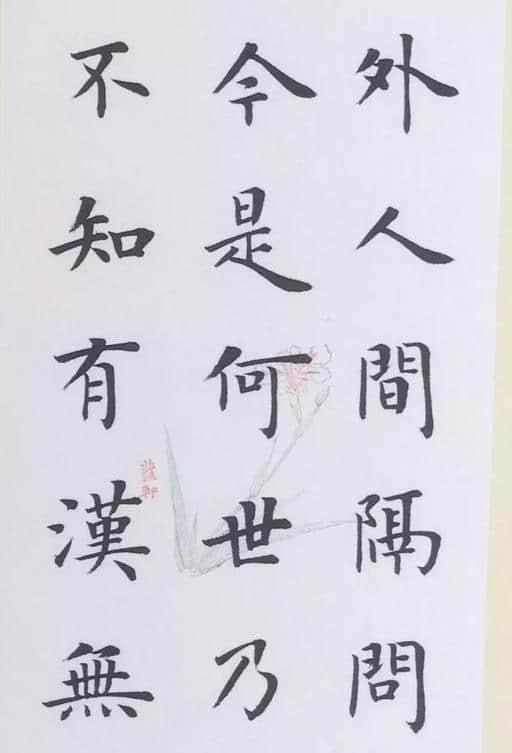 外人間隔問
今是何世乃
不知有漢無